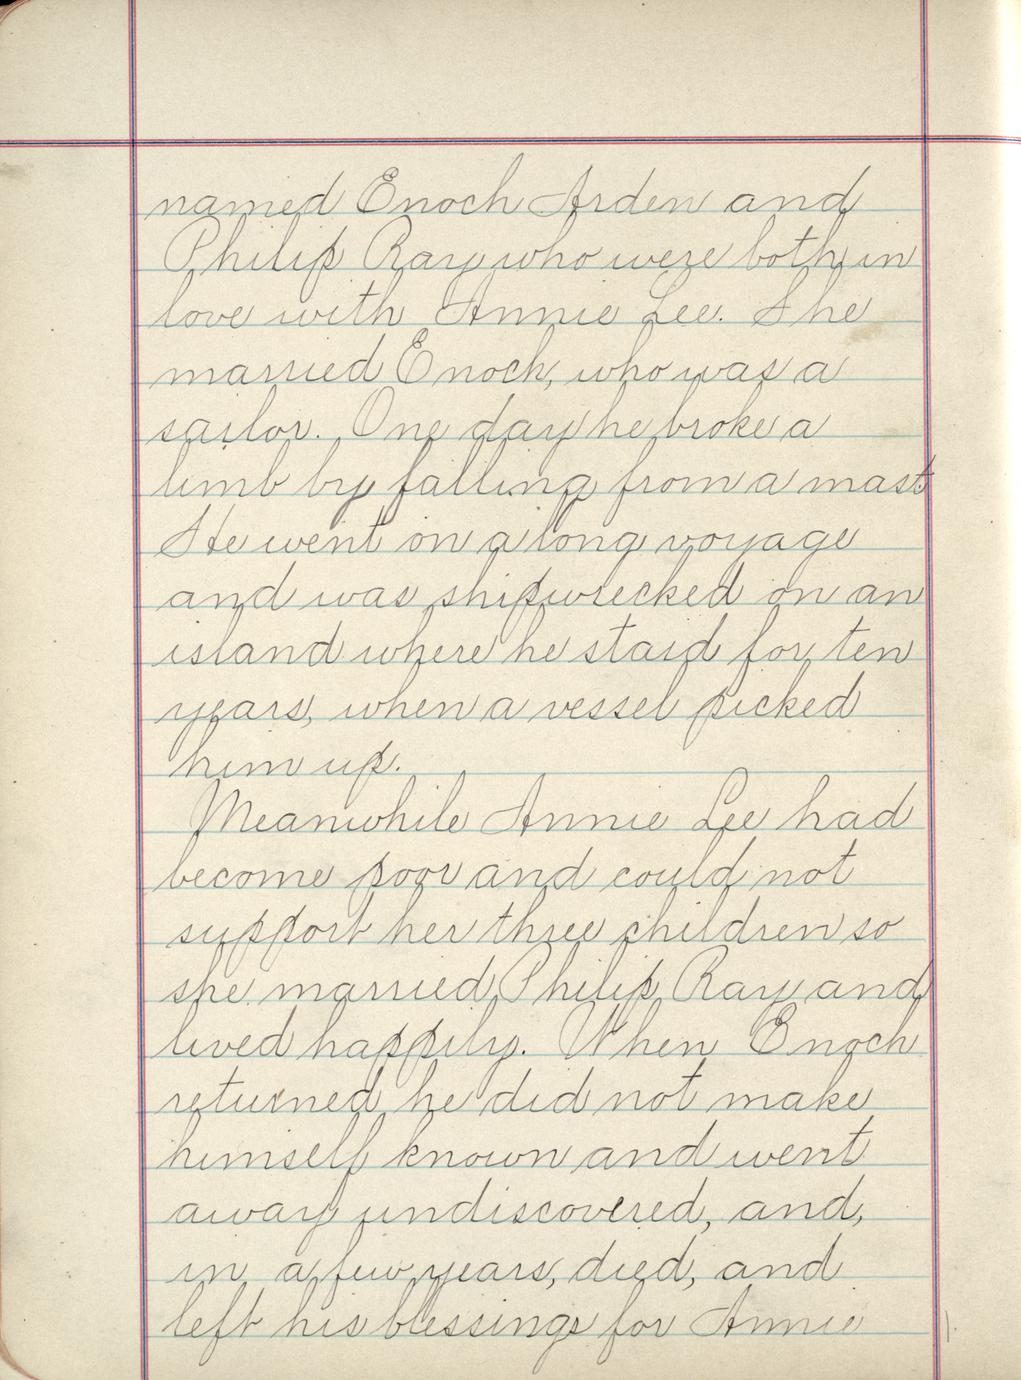 named Enoch Arden and
Philip Ray who were both in
love with Annie Lee. She
married Enoch, who was a
sailor. One day he broke a
limb by falling from a mast
He went on a long voyage
and was shipwrecked on an
island where he staid for ten
years, when a vessel picked
him up.
Meanwhile Annie Lee had
become poor and could not
support her three children so
she married Philip Ray and
lived happily. When Enoch
returned he did not make
himself known and went
away undiscovered, and,
in a few years, died, and
left his blessings for Annie